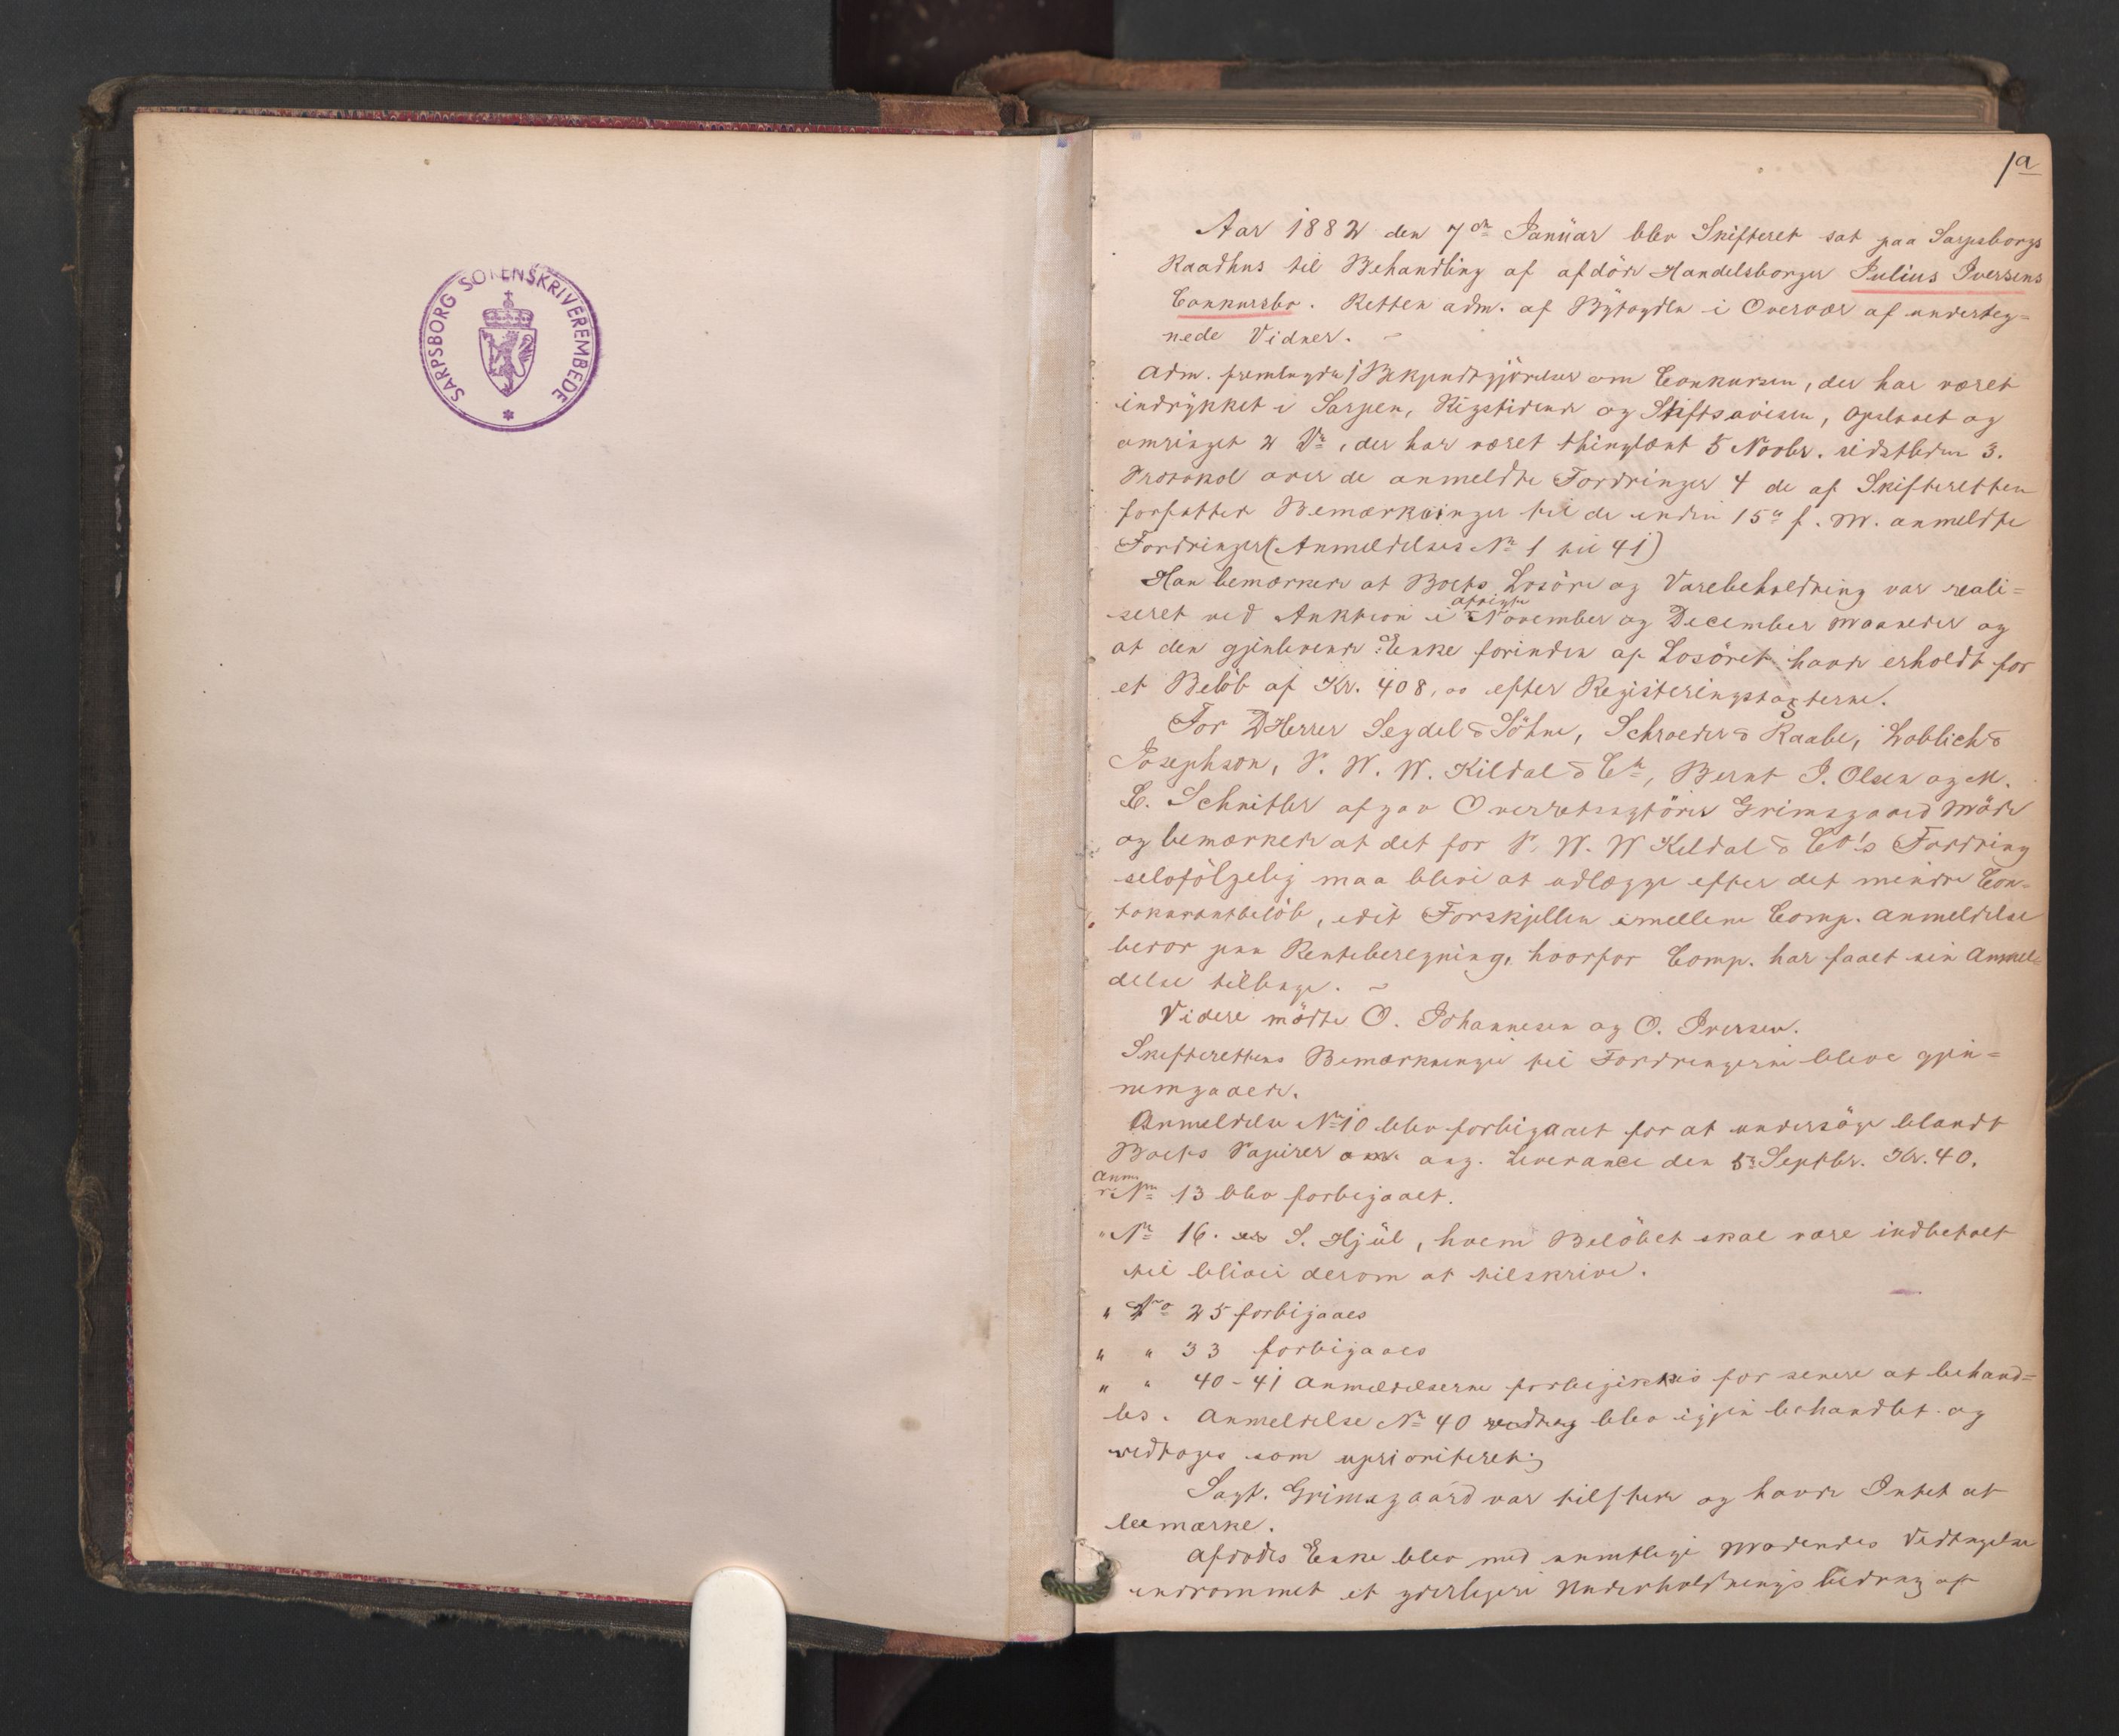 SARPSBORG SORENSKRIVEREMBEDE
1a
Aar 1882 den 7de Januar blev Skifteret sat paa Sarpsborgs
Raadhus til Behandling af afdöde Handelsborger Julius Iversens
Conkursbo. Retten adm. af Byfogden i Overvær af underteg=
nede Vidner. –
Adm. fremlagde 1 Bekjendtgjörelser om Conkursen, der har været
indrykket i Sarpen, Rigstidende og Stiftsavisen, opslaaet og
omringet 2 Do, der har været thinglæst 5 Novbr. sidstleden 3.
Protokol over de anmeldte Fordringer 4 de af Skifteretten
forfatter Bemærkninger til de inden 15de f. M. anmeldte
Fordringer (Anmeldelser No 1 til 41)
Han bemærkede at Boets Lösöre og Varebeholdning var reali=
seret ved Auktion i afvigte November og December Maaneder og
at den gjenlevende Enke forinden af Lösöret havde erholdt for
et Belöb af Kr. 408,00 efter Registeringstaxterne.
For DHerrer Seydel & Söhne, Schroeder & Raabe, Loblich &
Josephson, P. W. W. Kildal & Co, Bernt J. Olsen og M.
L. Schnitler afgav Overretssagförer Grimsgaard Möde
og bemærkede at det for P. W. W Kildal & Co's Fordring
selvfölgelig maa blive at udlægge efter det mindre Con-
tokurantbelöb, idet Forskjellen imellem Comp. Anmeldelse
beror paa Renteberegning, hvorfor Comp. har faaet sin Anmel=
delse tilbage. –
Videre mödte O. Johannesen og O. Iversen.
Skifterettens Bemærkninger til Fordringerne bleve gjen=
nemgaaede.
Anmeldelse No 10 blev forbigaaet for at undersöge blandt
Boets Papirer om ang. Leverance den 5. Septbr. Kr. 40.
Anm. No 13 blev forbigaaet.
" No 16. S. Hjül, hvem Belöbet skal være indbetalt
til bliver derom at tilskrive.
" No 25 forbigaaes
" " 33 forbigaaes
" " 40-41 Anmeldelserne forbigikkes for senere at behand=
les. Anmeldelse No 40 blev igjen behandlet og
vedtoges som uprioriteret.
Sagf. Grimsgaard var tilstede og havde Intet at
bemærke.
Afdødes Enke blev med samtlige Mødendes Vedtagelse
indrømmet et yderligere Underholdnings bidrag af